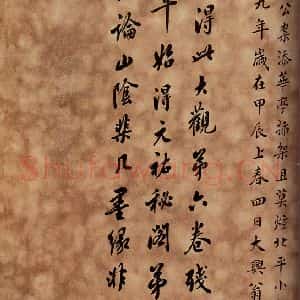 公案添華亭孫架且莫 北平小
九年歲在甲辰上春四日大興翁
得此大觀第六卷殘
年始得元祐秘閣第
論山陰棐几墨緣非